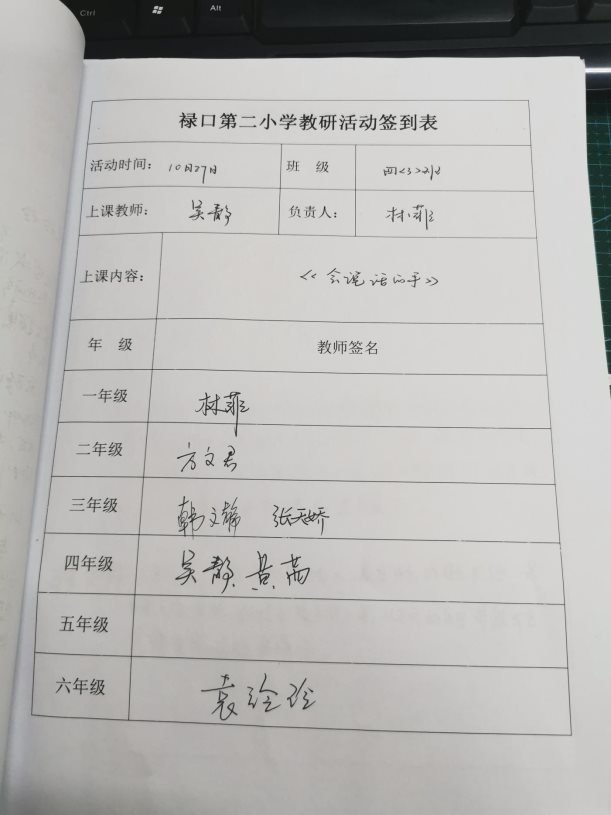 Ctrl
Alt
禄口第二小学教研活动签到表
活动时间: 10月27日 班 级 四<3>班
上课教师: 吴静 负责人: 林菲
上课内容: <<会说话的手>>
年 级 教师签名
一年级 林菲
二年级 方文君
三年级 韩文静 张天娇
四年级 吴静 黄茜
五年级
六年级 袁玲玲